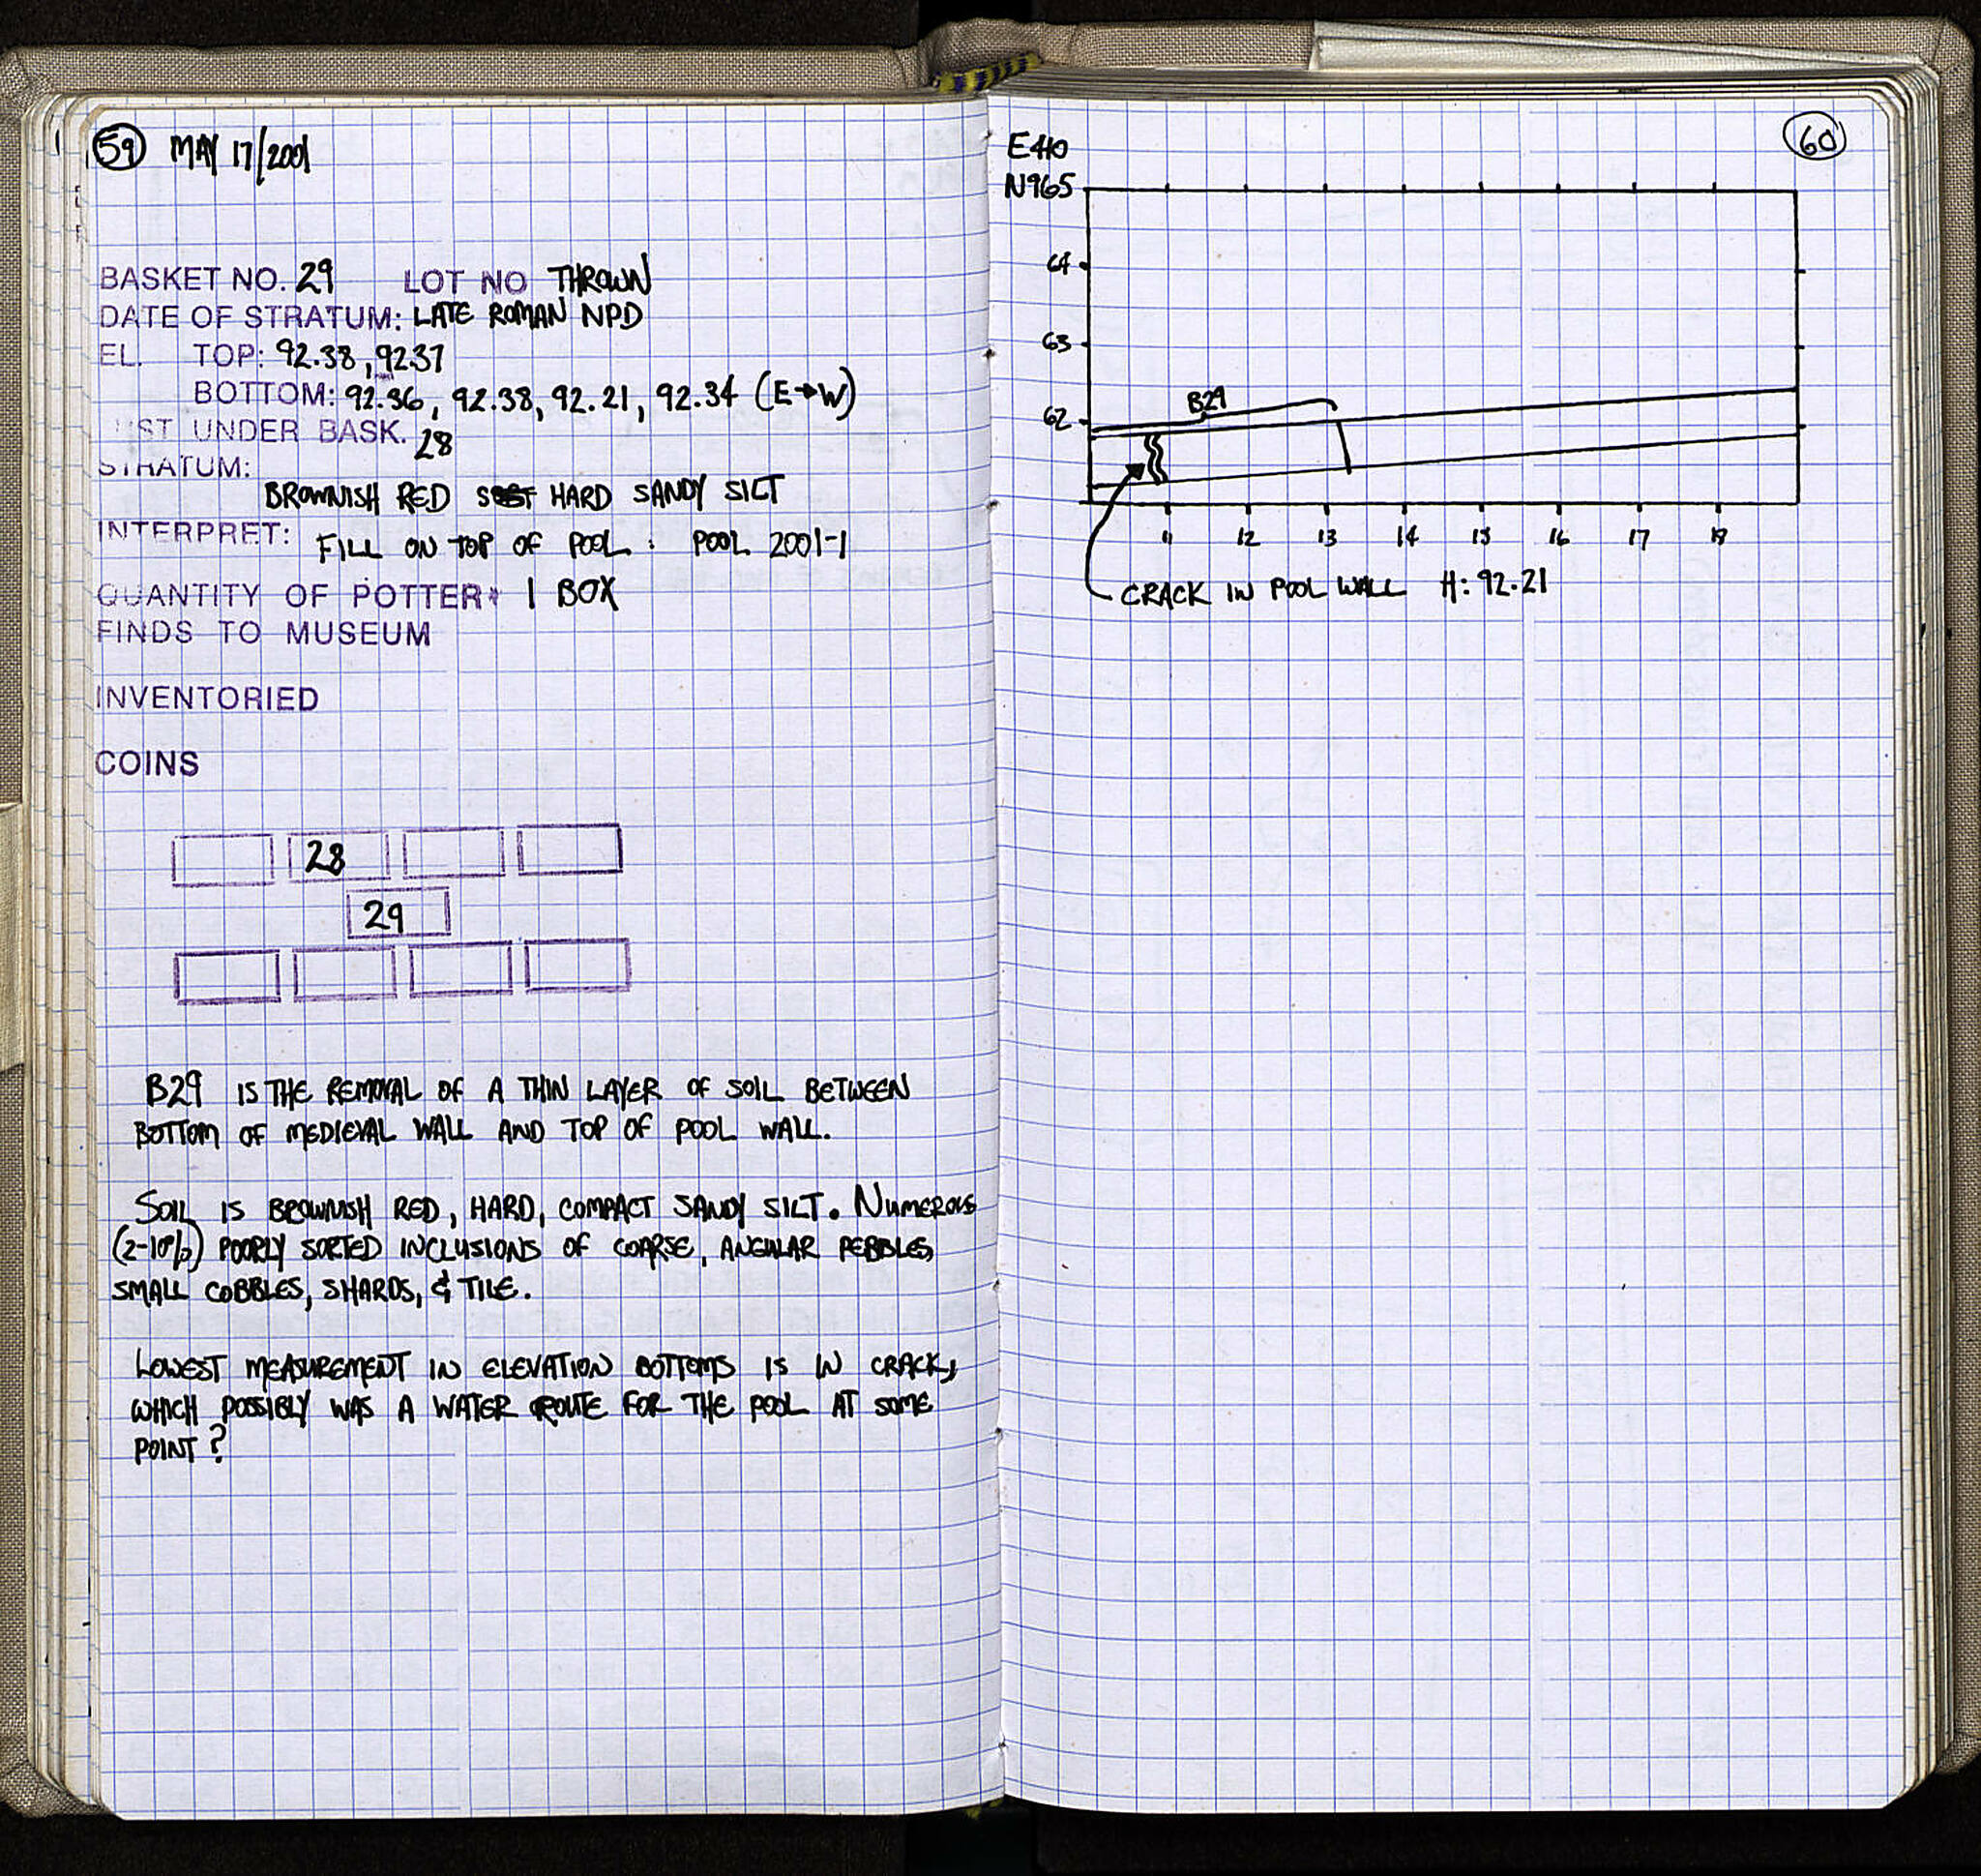 59 MAY 17/2001
BASKET NO. 29 LOT NO THROWN
DATE OF STRATUM: LATE ROMAN NPD
EL. TOP: 92.38, 92.37
BOTTOM: 92.36, 92.38, 92.21, 92.34 (E→W)
UNDER BASK. 28
STRATUM:
BROWNISH RED HARD SANDY SILT
INTERPRET: FILL ON TOP OF POOL. POOL 2001-1
QUANTITY OF POTTERY 1 BOX
FINDS TO MUSEUM
INVENTORIED
COINS
28
29
B29 IS THE REMOVAL OF A THIN LAYER OF SOIL BETWEEN
BOTTOM OF MEDIEVAL WALL AND TOP OF POOL WALL.
SOIL IS BROWNISH RED, HARD, COMPACT SANDY SILT. NUMEROUS
(2-10%) POORLY SORTED INCLUSIONS OF COARSE, ANGULAR PEBBLES,
SMALL COBBLES, SHARDS, & TILE.
LOWEST MEASUREMENT IN ELEVATION BOTTOMS IS IN CRACK,
WHICH POSSIBLY WAS A WATER ROUTE FOR THE POOL AT SOME
POINT?
60
E410
N965
64
63
62
B29
11 12 13 14 15 16 17 18
CRACK IN POOL WALL H: 92.21